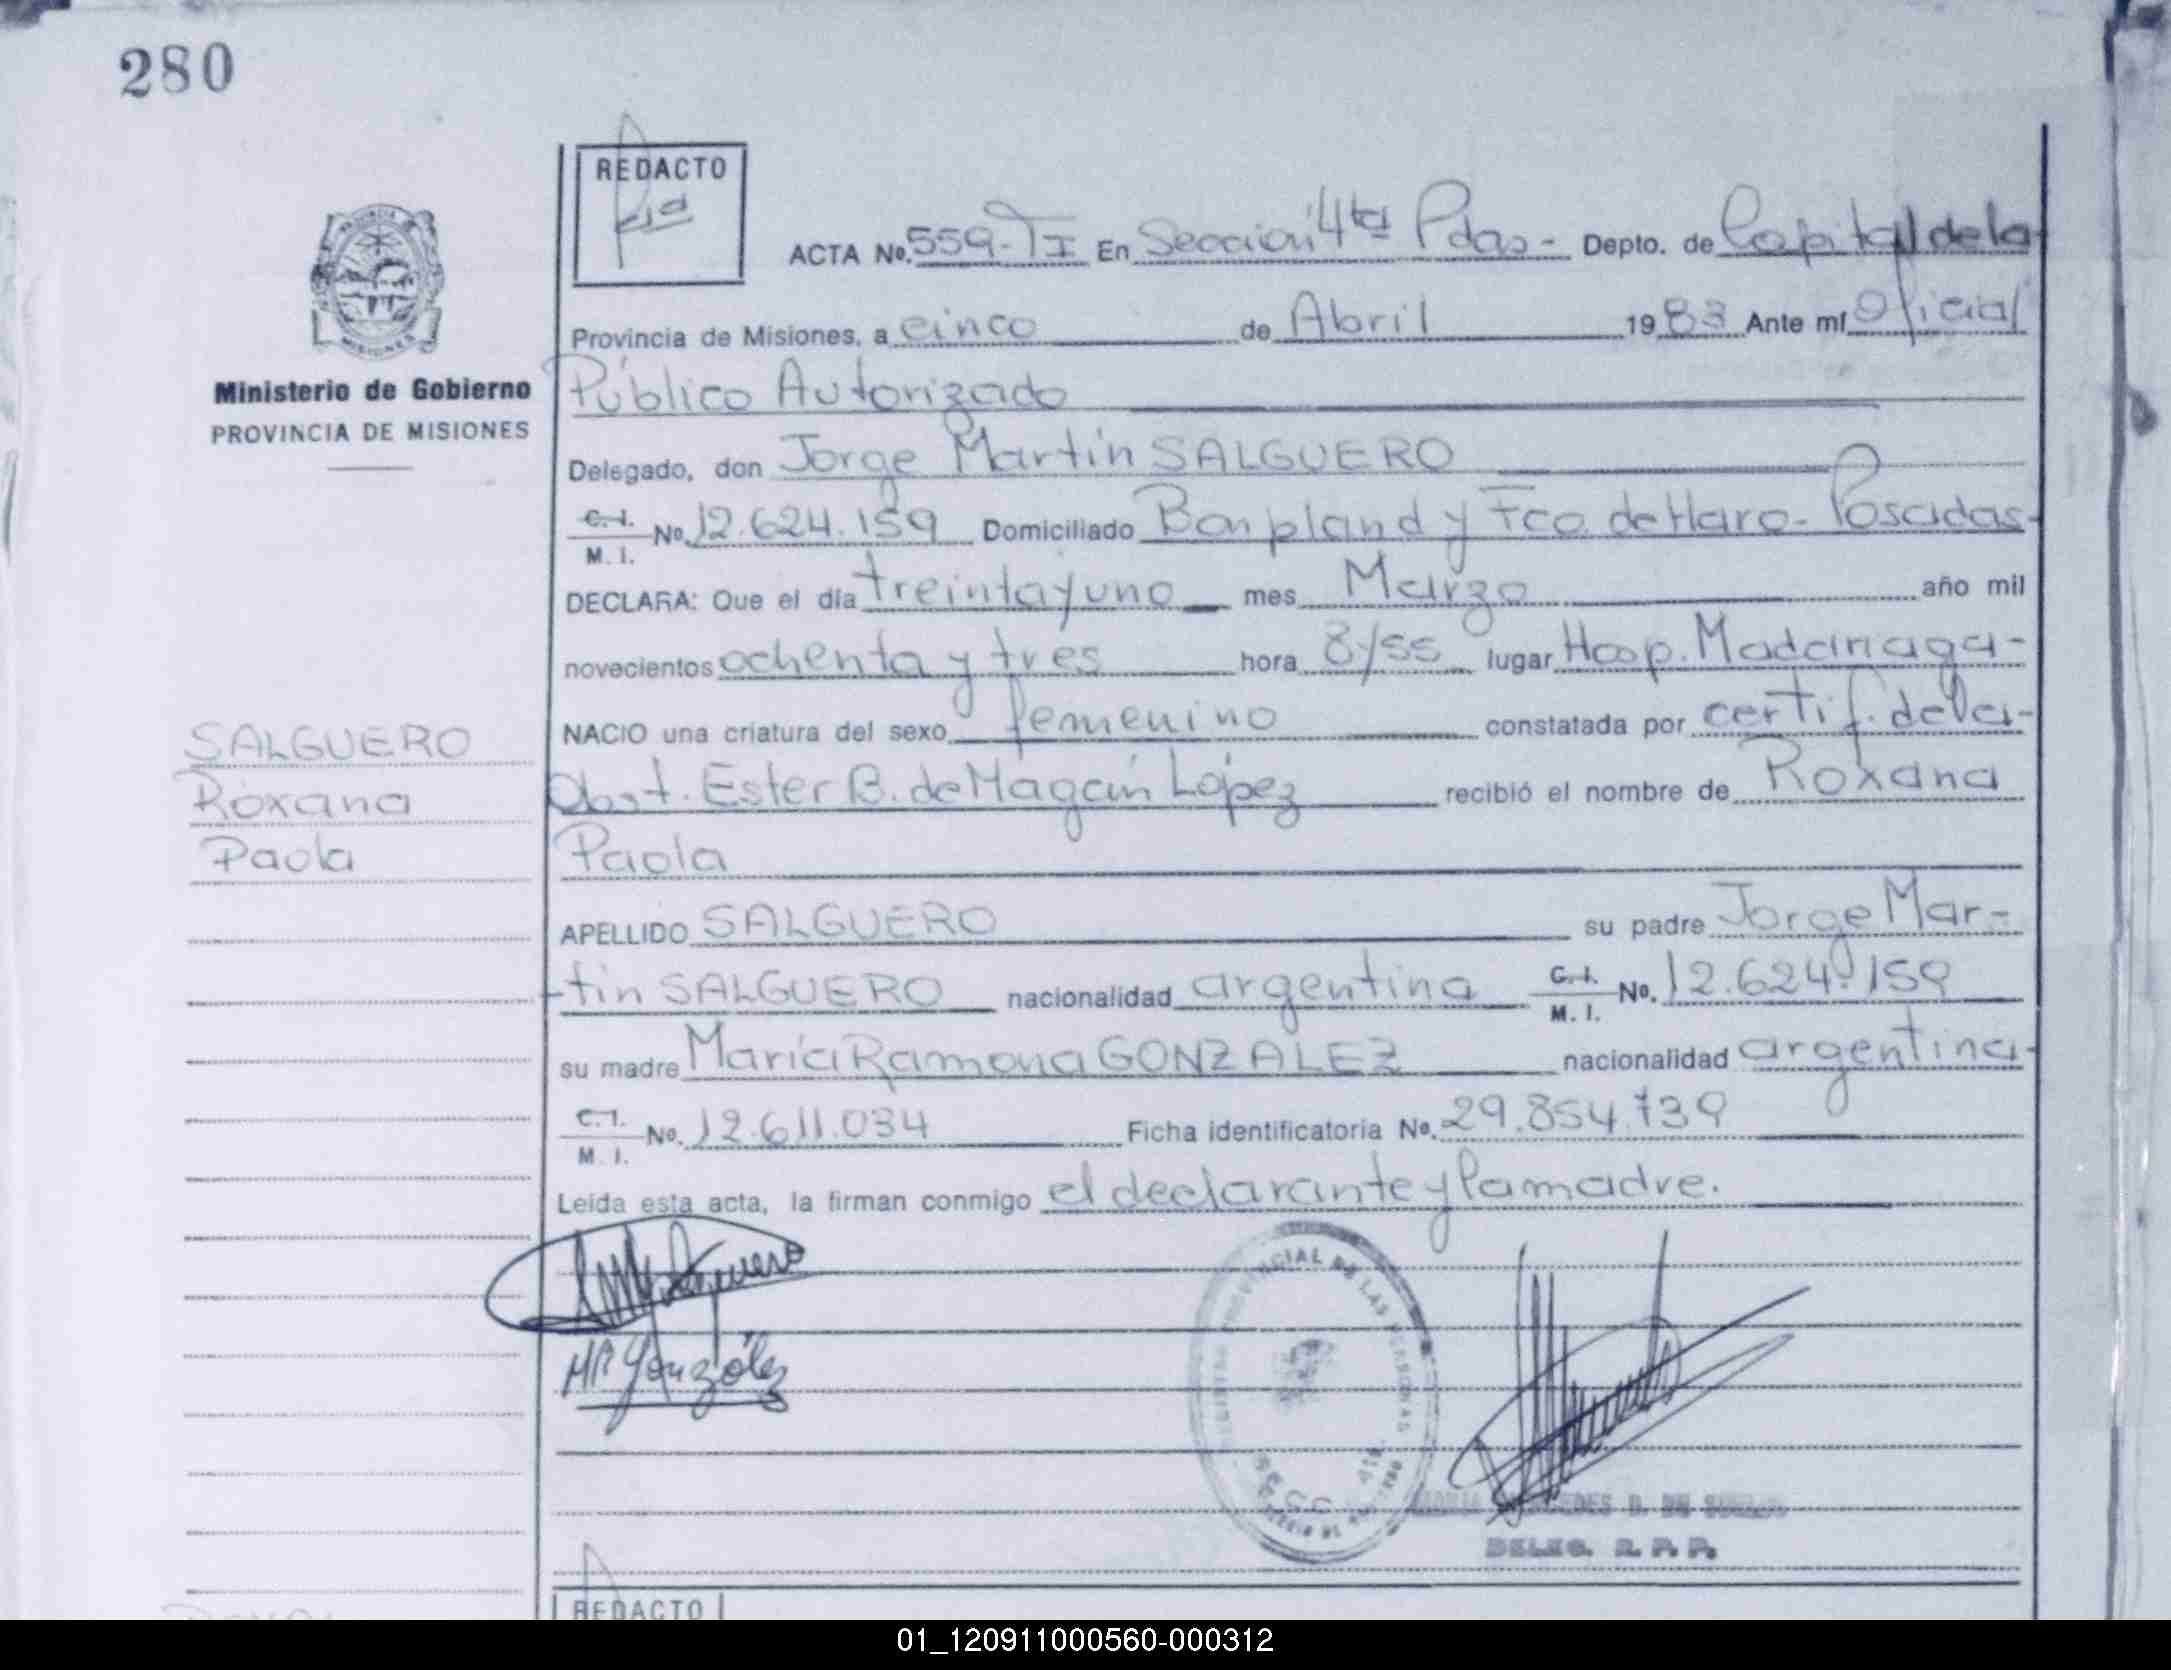 280
REDACTO
ACTA Nº. 559-TI En Sección 4ta Pdas- Depto. de Capital de la
Provincia de Misiones, a cinco de Abril 1983 Ante mí Oficial
Ministerio de Gobierno
PROVINCIA DE MISIONES
Público Autorizado
Delegado, don Jorge Martín SALGUERO
C.I. M.I. Nº. 12.624.159 Domiciliado Bonpland y Fco. de Haro- Posadas-
DECLARA: Que el día treinta y uno mes Marzo año mil
novecientos ochenta y tres hora 8/55 lugar Hosp. Madariaga-
NACIO una criatura del sexo femenino constatada por certif. de la-
SALGUERO
Roxana
Paola
Obst. Ester B. de Magán López recibió el nombre de Roxana
Paola
APELLIDO SALGUERO su padre Jorge Mar-
-tín SALGUERO nacionalidad argentina C.I. M.I. Nº. 12.624.159
su madre María Ramona GONZALEZ nacionalidad argentina-
C.I. M.I. Nº. 12.611.034 Ficha identificatoria Nº. 29.854.739
Leída esta acta, la firman conmigo el declarante y la madre.
MR González
PROVINCIAL DE LAS PERSONAS
DELEG. R. P. P.
REDACTO
01_120911000560-000312